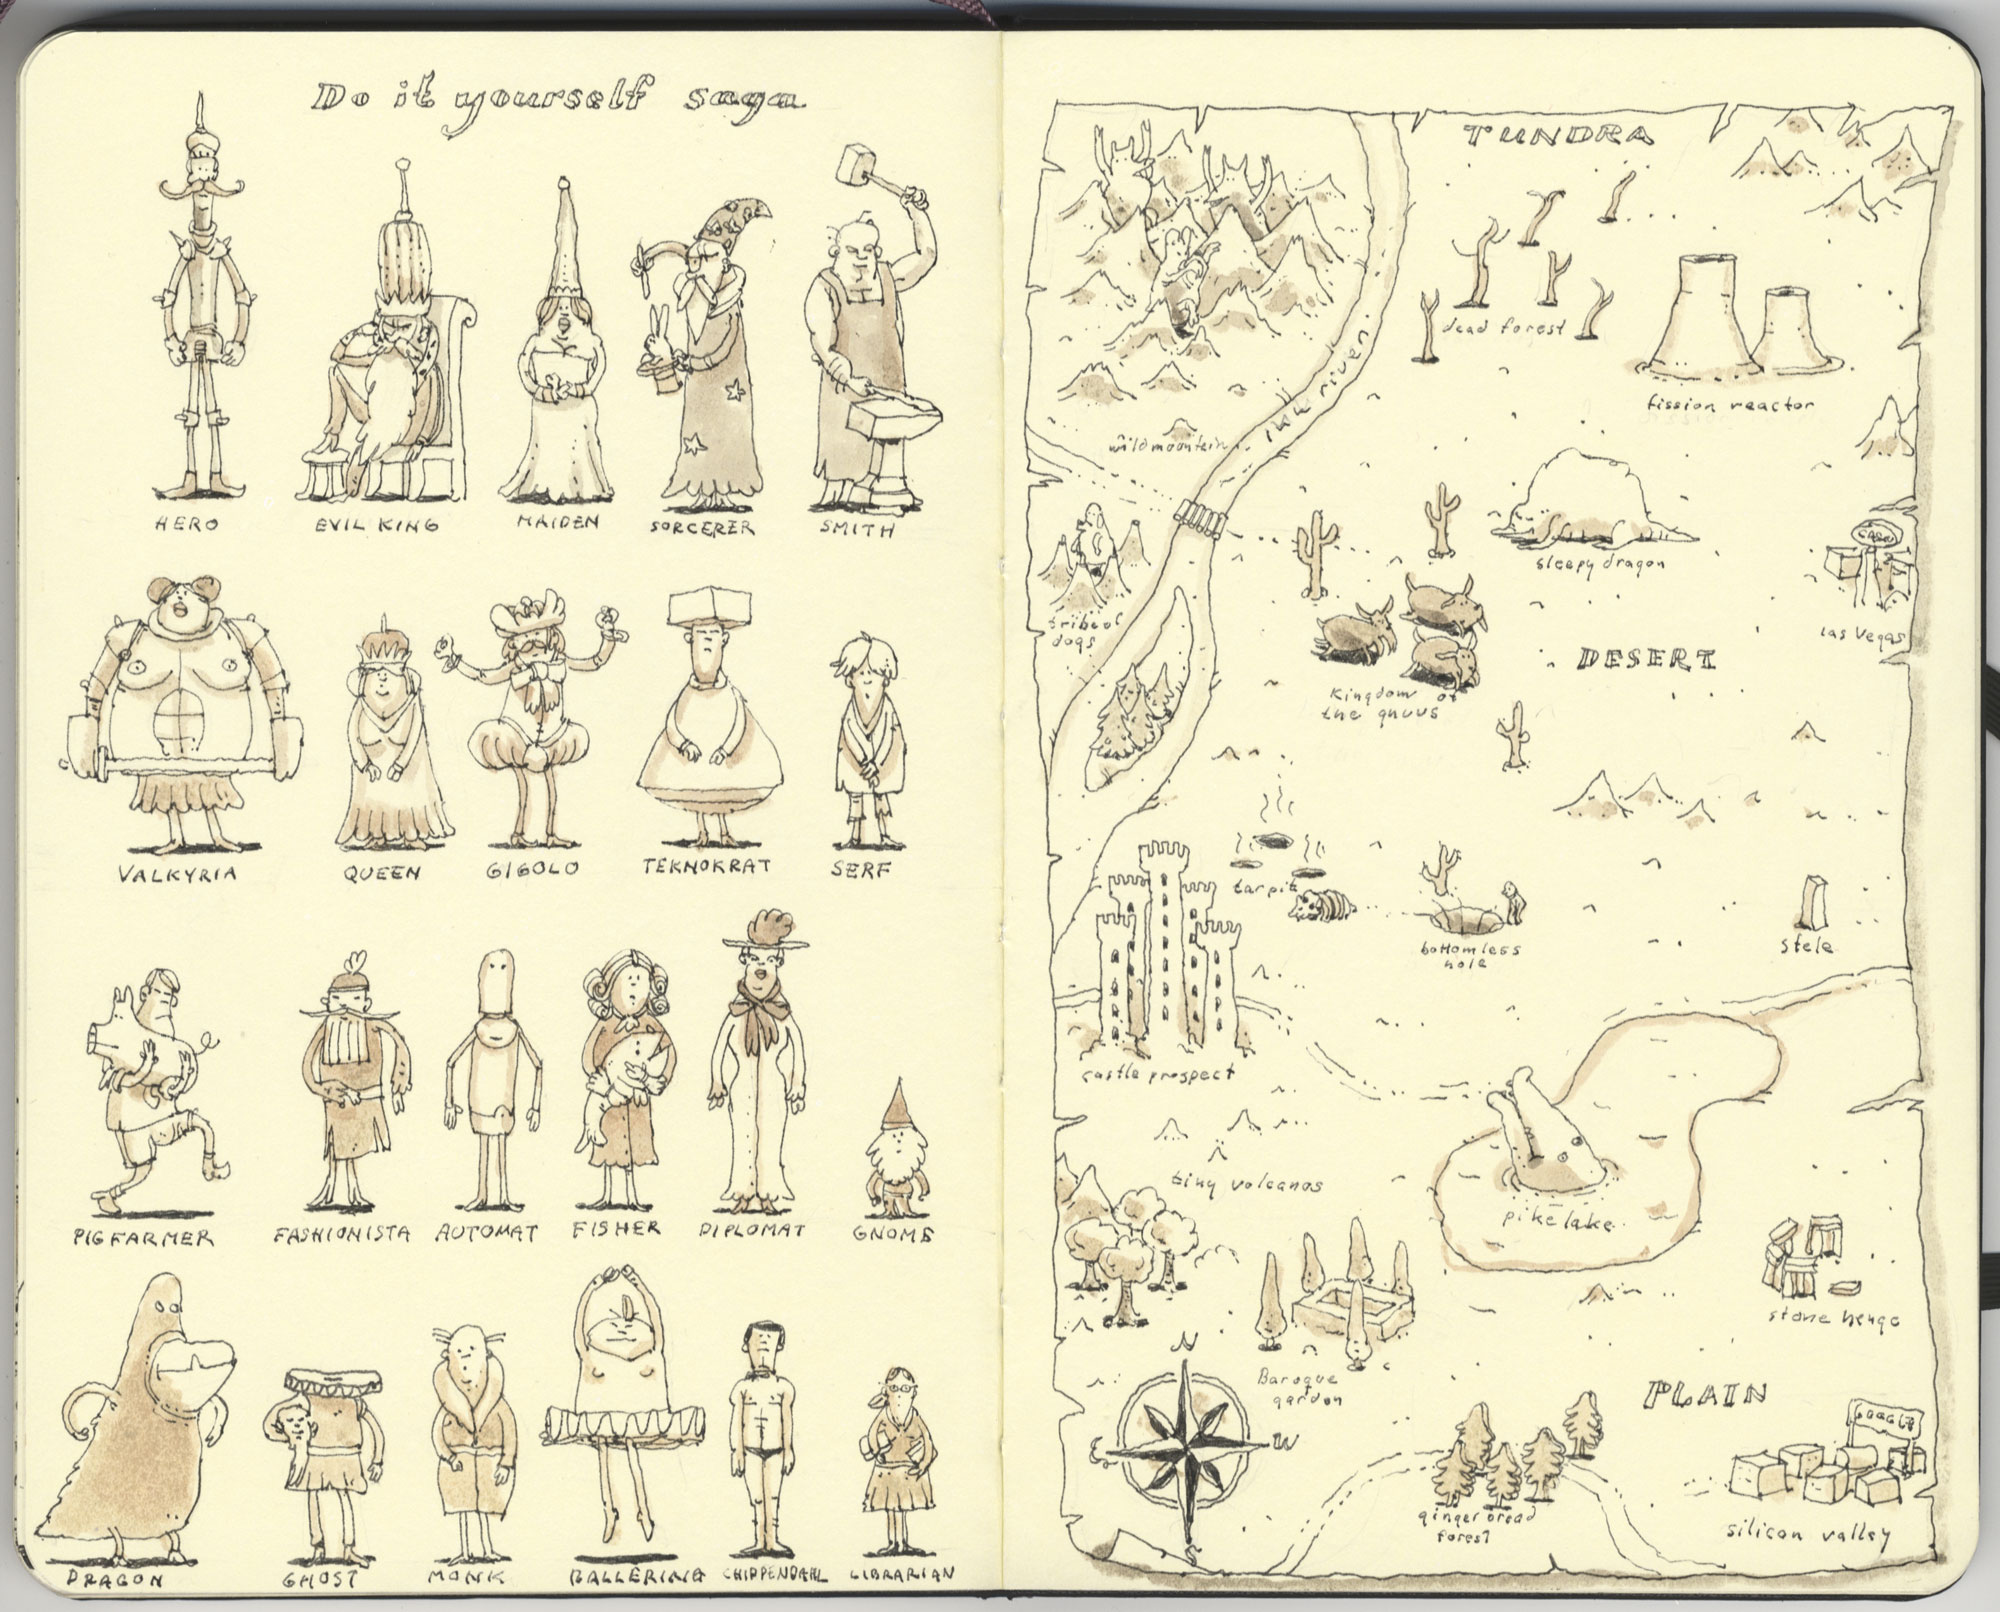 Do it yourself saga
HERO
EVIL KING
MAIDEN
SORCERER
SMITH
VALKYRIA
QUEEN
GIGOLO
TEKNOKRAT
SERF
PIGFARMER
FASHIONISTA
AUTOMAT
FISHER
DIPLOMAT
GNOME
DRAGON
GHOST
MONK
BALLERINA
CHIPPENDAHL
LIBRARIAN
TUNDRA
dead forest
fission reactor
ink river
wild mountein
sleepy dragon
tribe of
dogs
las Vegas
DESERT
Kingdom of
the gnuus
tarpit
bottomless
hole
stele
castle prospect
tiny volcanos
pike lake
stone henge
Baroque
garden
N
W
S
PLAIN
GOOGLE
ginger bread
forest
silicon valley